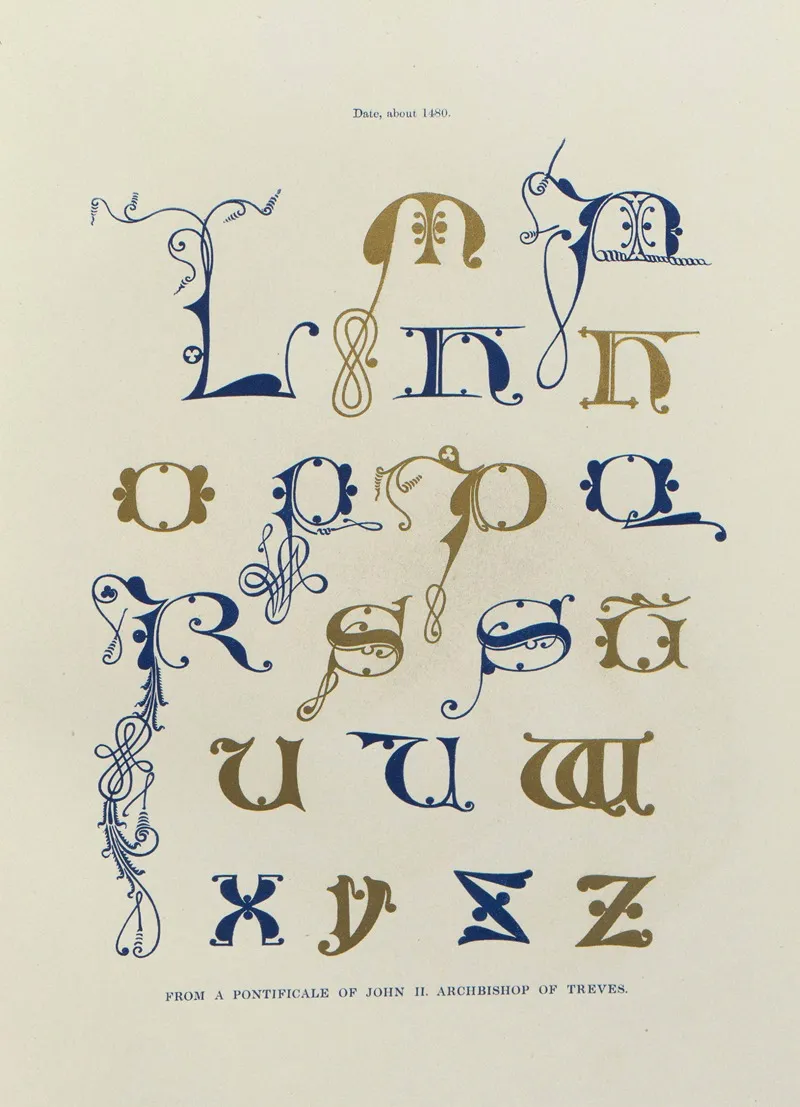 Date, about 1480.
L M M
N N
O P P Q
R S S U
U U W
X Y Z Z
FROM A PONTIFICALE OF JOHN II. ARCHBISHOP OF TREVES.